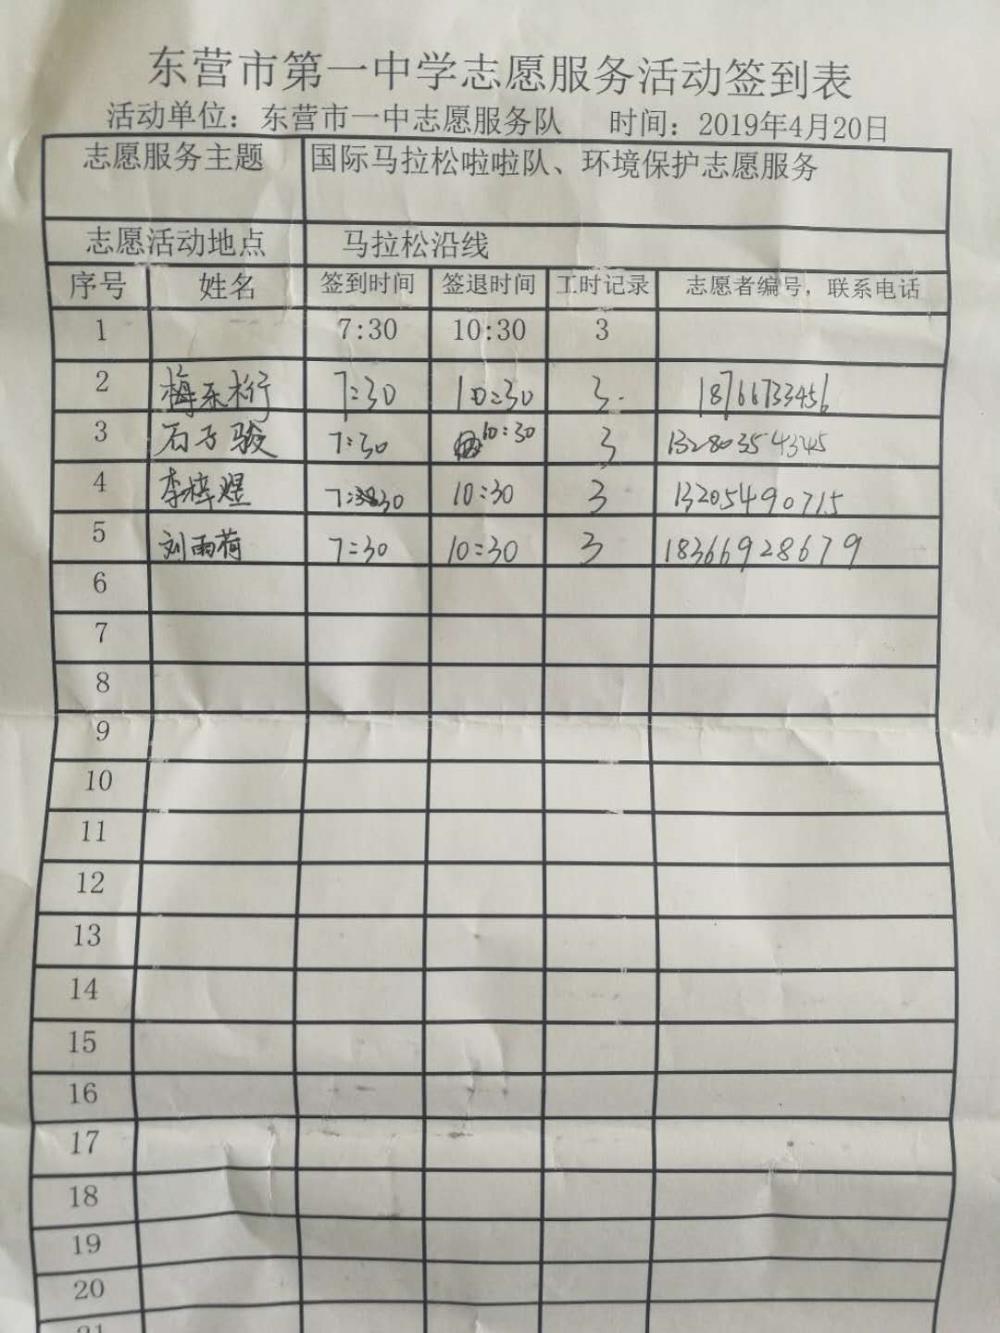 东营市第一中学志愿服务活动签到表
活动单位：东营市一中志愿服务队 时间：2019年4月20日
志愿服务主题 国际马拉松啦啦队、环境保护志愿服务
志愿活动地点 马拉松沿线
序号 姓名 签到时间 签退时间 工时记录 志愿者编号，联系电话
1 7:30 10:30 3
2 梅东桁 7:30 10:30 3. 18766733456
3 石子骏 7:30 10:30 3 13280354345
4 李梓煜 7:30 10:30 3 13205490715
5 刘雨荷 7:30 10:30 3 18366928679
6
7
8
9
10
11
12
13
14
15
16
17
18
19
20
21